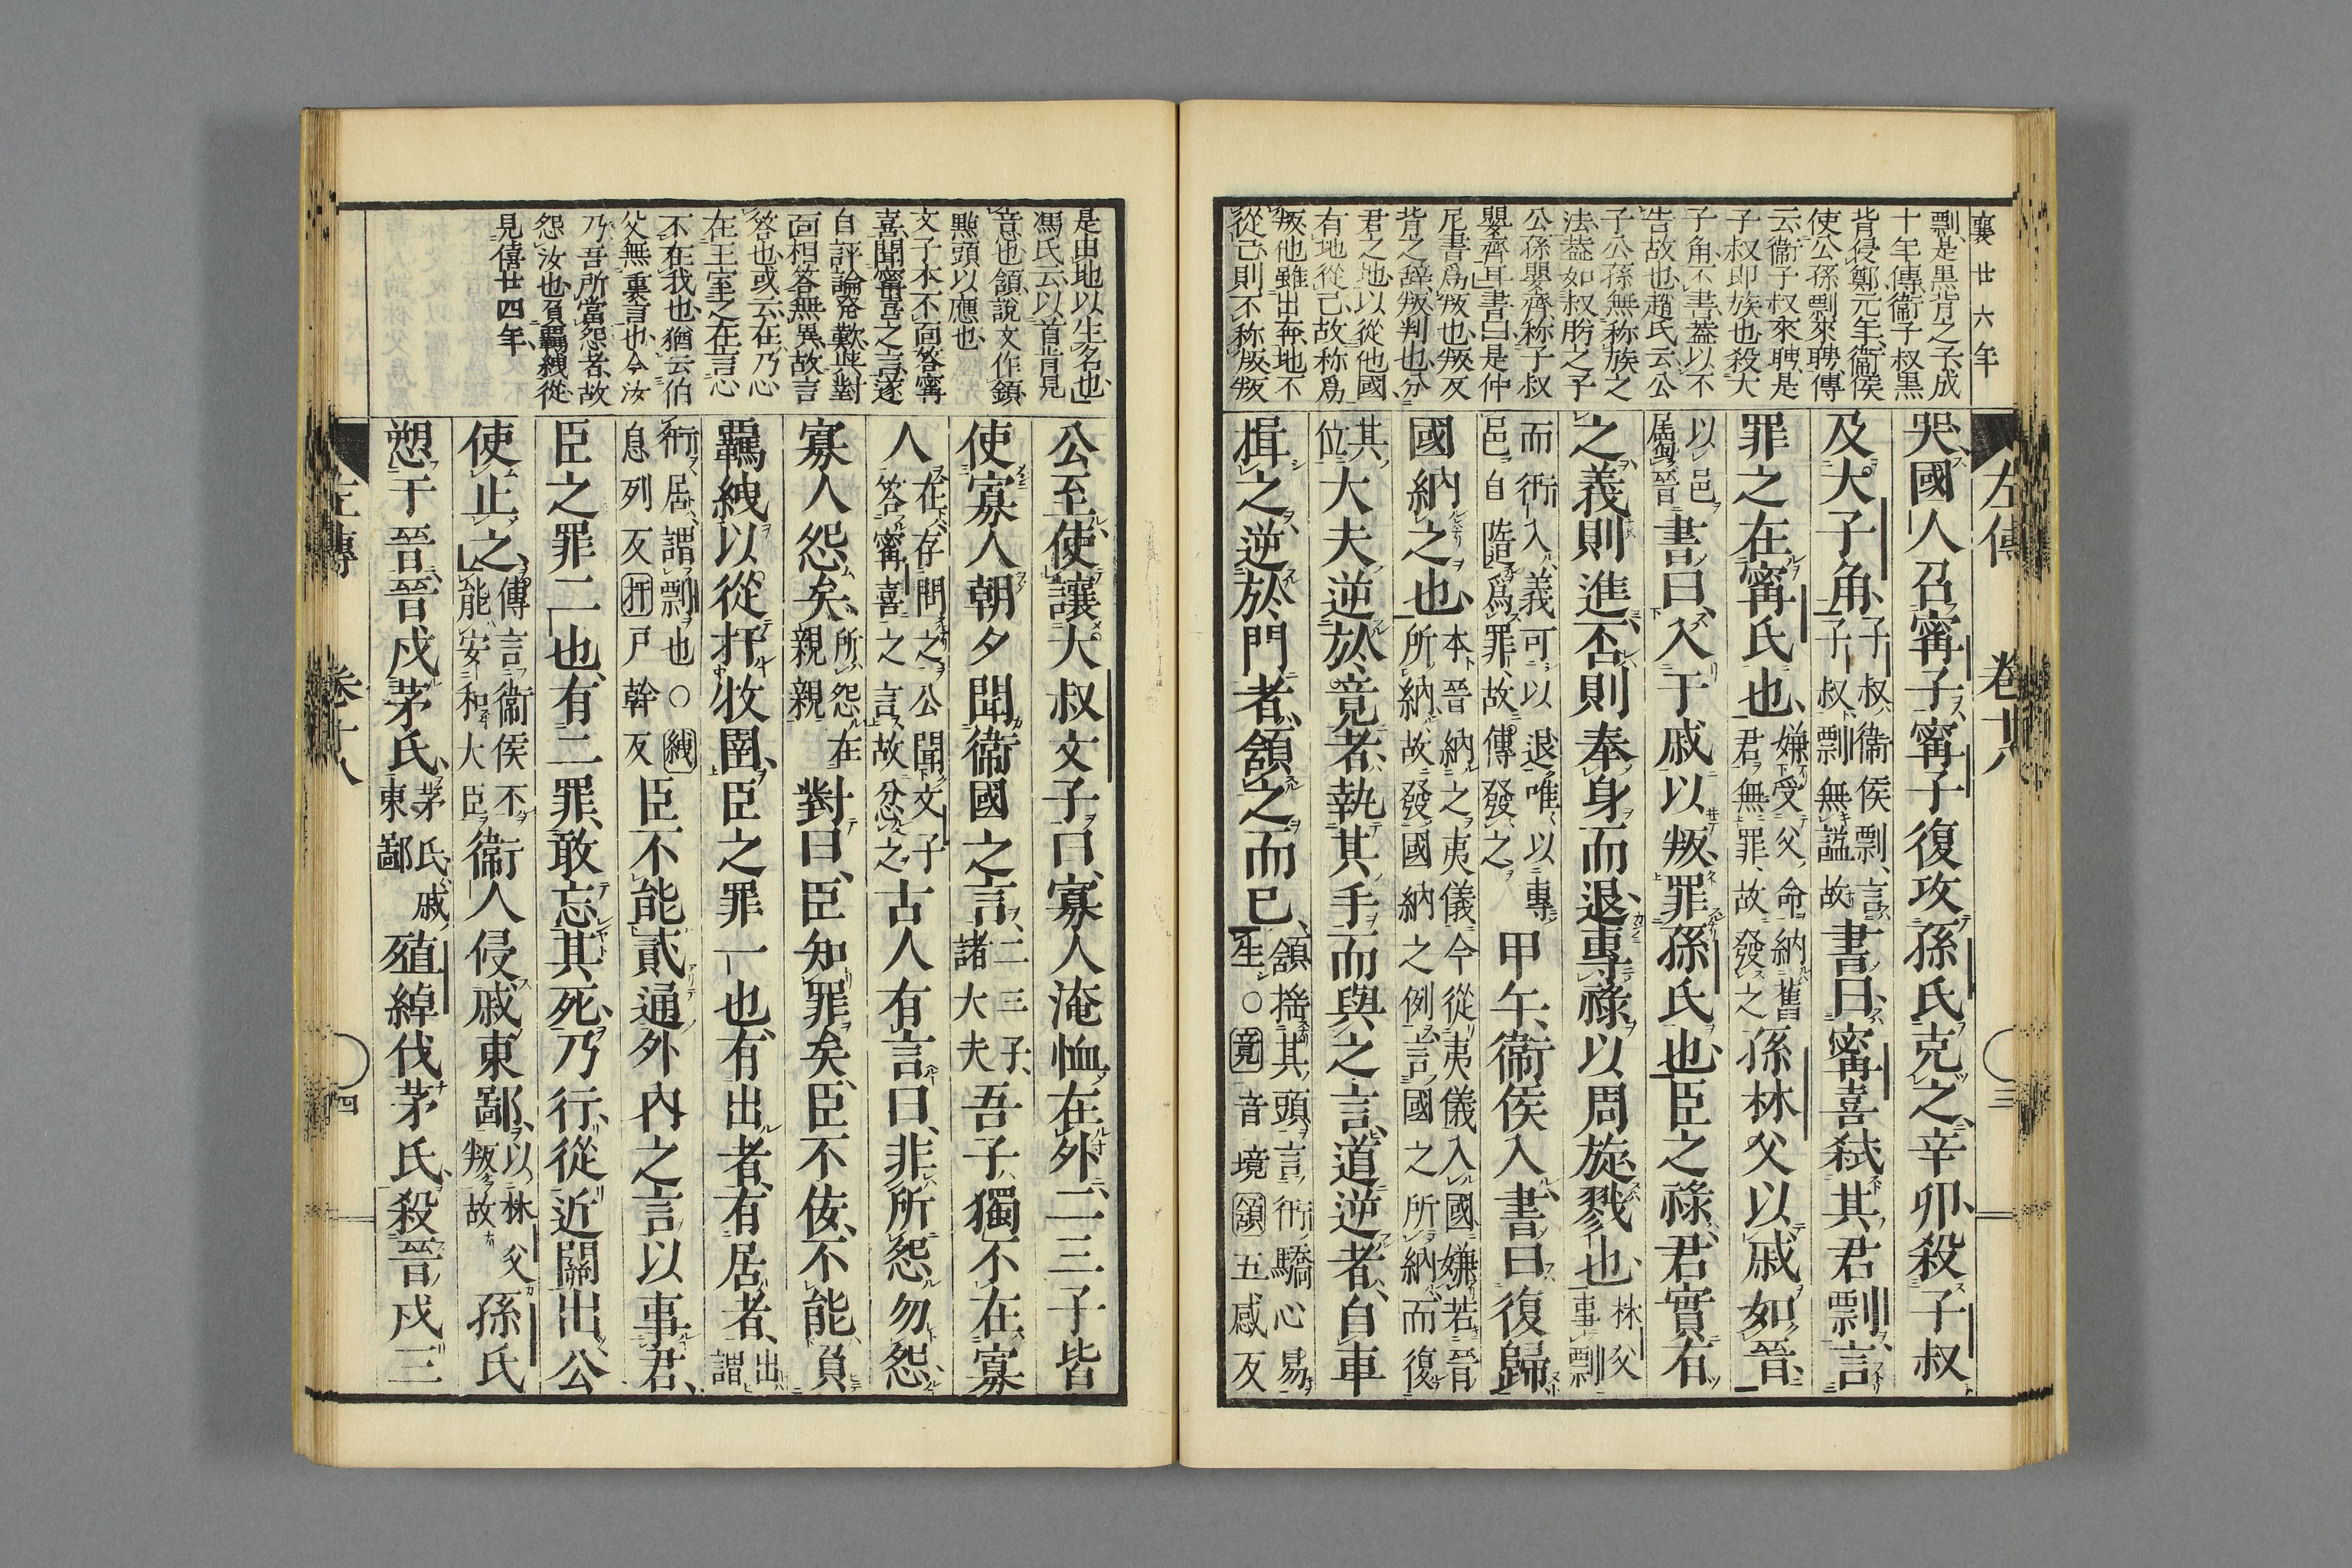 襄廿六年
剽是黒背之子成
十年傳衞子叔黒
背侵鄭元年衞侯
使公孫剽來聘傳
云衞子叔來聘是
子叔即族也殺大
子角不書葢以不
告故也趙氏云公
子公孫無称族之
法葢如叔肹之子
公孫嬰齊称子叔
嬰齊耳書曰是仲
尼書爲叛也叛反
背之辞叛判也分
君之地以從他國
有地從己故称爲
叛他雖出奔地不
從己則不称叛叛
左傳 卷十八 三
哭國人召甯子甯子復攻孫氏克之辛卯殺子叔
及大子角子叔衞侯剽言子叔剽無謚故書曰甯喜弑其君剽言
罪之在甯氏也嫌受父命納舊君無罪故發之孫林父以戚如晉
以邑屬晉書曰入于戚以叛罪孫氏也臣之祿君實有
之義則進否則奉身而退專祿以周旋戮也林父事剽
而衎入義可以退唯以專邑自隨爲罪故傳發之甲午衞侯入書曰復歸
國納之也本晉納之夷儀今從夷儀入國嫌若晉所納故發國納之例言國之所納而復
其位大夫逆於竟者執其手而與之言道逆者自車
揖之逆於門者頷之而已頷搖其頭言衎驕心易生○竟音境頷五感反
是出地以生名也
馮氏云以首肯見
音也頷說文作顉
㸃頭以應也
文子本不面答甯
喜聞甯喜之言遂
自評論発歎與對
面相答無異故言
答也或云在乃心
在王室之在言心
不在我也猶云伯
父無裏言也今汝
乃吾所當怨者故
怨汝也負羈絏從
見僖廿四年
公至使讓大叔文子曰寡人淹恤在外二三子皆
使寡人朝夕聞衞國之言二三子諸大夫吾子獨不在寡
人在存問之公聞文子答甯喜之言故忿之古人有言曰非所怨勿怨
寡人怨矣所怨在親親對曰臣知罪矣臣不佞不能負
羈絏以從扞牧圉臣之罪一也有出者有居者出謂
衎居謂剽也○絏息列反扞戸幹反臣不能貳通外內之言以事君
臣之罪二也有二罪敢忘其死乃行從近關出公
使止之傳言衞侯不能安和大臣衞人侵戚東鄙以林父叛故孫氏
愬于晉晉戍茅氏茅氏戚東鄙殖綽伐茅氏殺晉戍三
左傳 卷十八 四